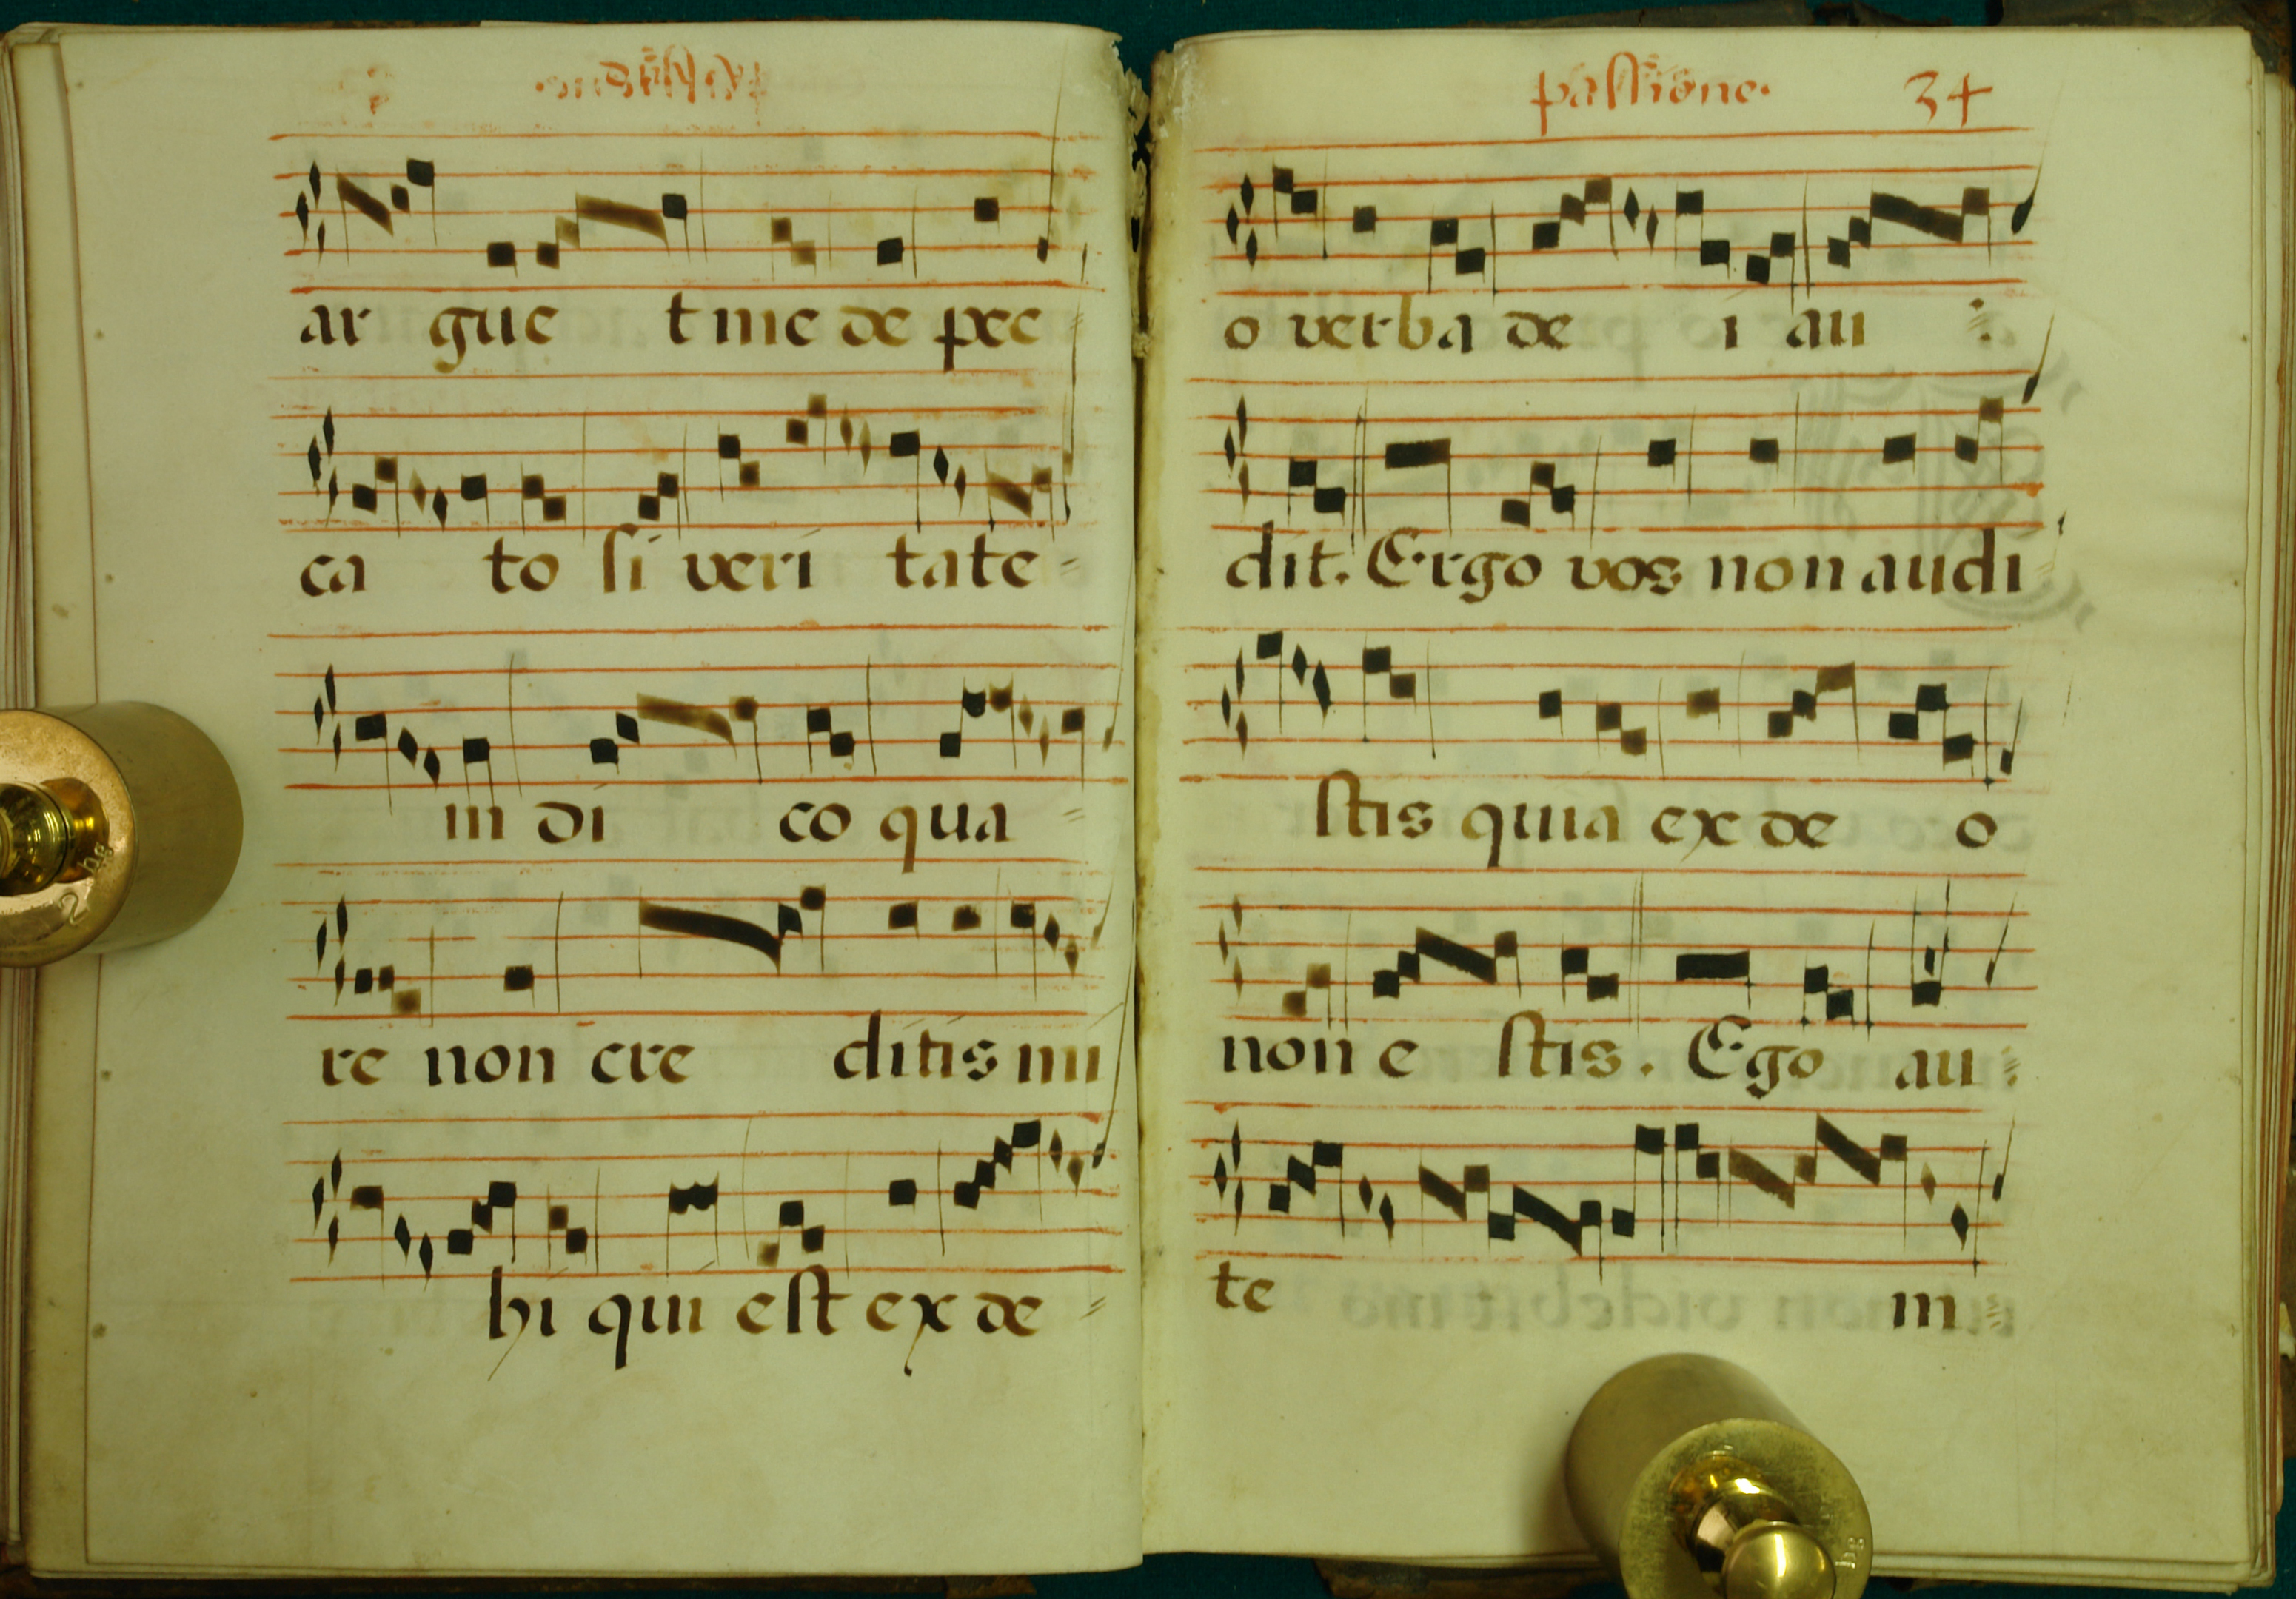 ar gue t me de pec
ca to si veri tate
in di co qua
re non cre ditis mi
hi qui est ex de
passione. 34
o verba de i au
dit. Ergo vos non audi
stis quia ex de o
non e stis. Ego au
te m